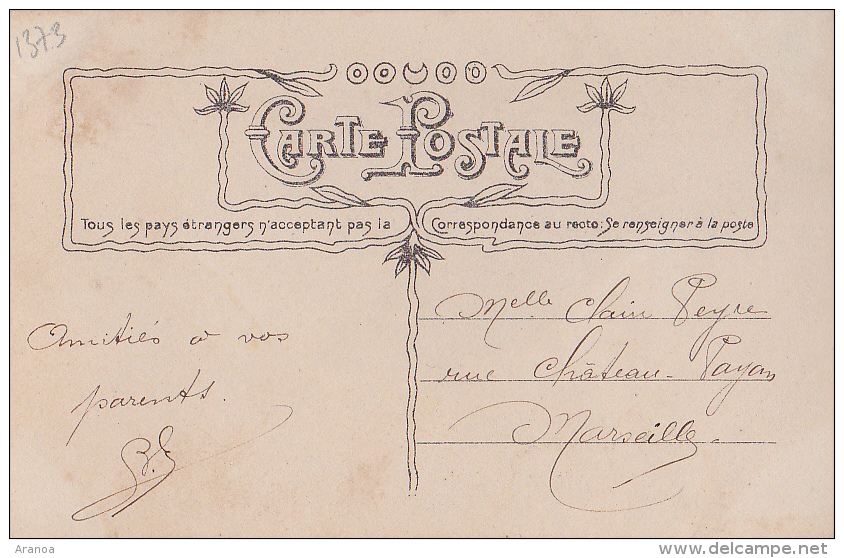 1373
CARTE POSTALE
Tous les pays étrangers n'acceptant pas la Correspondance au recto: Se renseigner à la poste
Amitiés à vos
parents.
Melle Clair Peyre
rue Château-Payan
Marseille.
Aranoa
www.delcampe.net